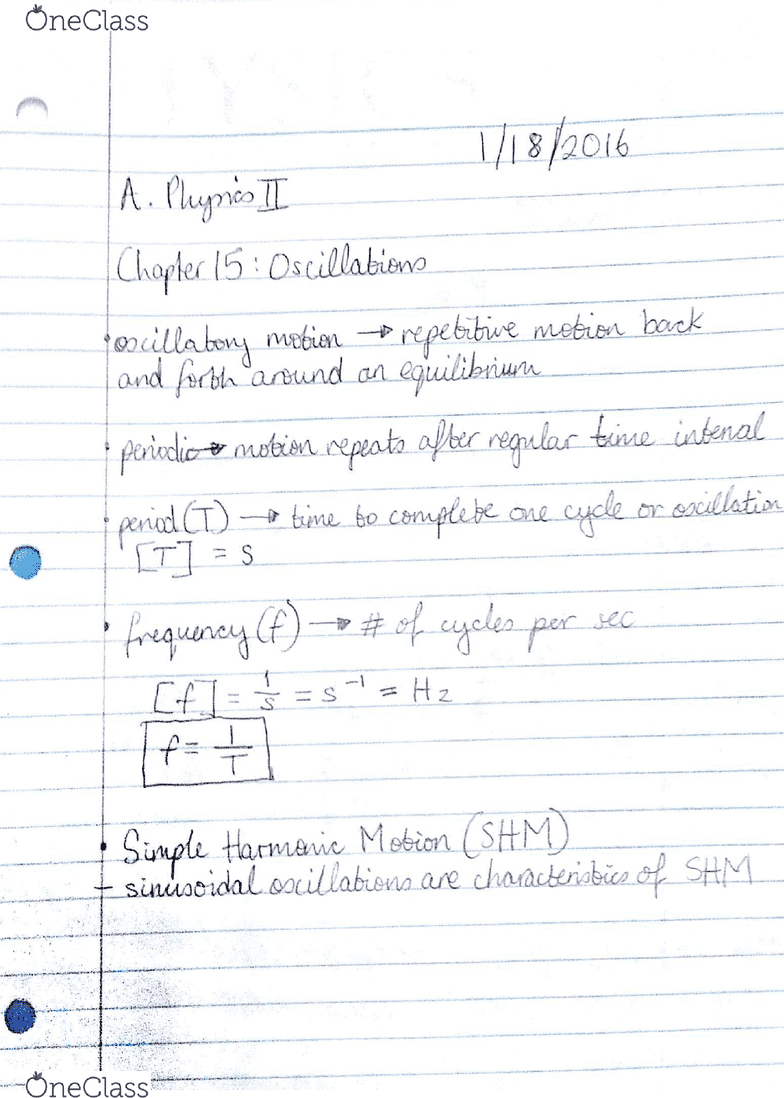 OneClass
1/18/2016
A. Physics II
Chapter 15: Oscillations
• oscillatory motion → repetitive motion back
and forth around an equilibrium
• periodic → motion repeats after regular time interval
• period (T) → time to complete one cycle or oscillation
[T] = s
• frequency (f) → # of cycles per sec
[f] = 1/s = s⁻¹ = Hz
f = 1/T
• Simple Harmonic Motion (SHM)
- sinusoidal oscillations are characteristics of SHM
OneClass